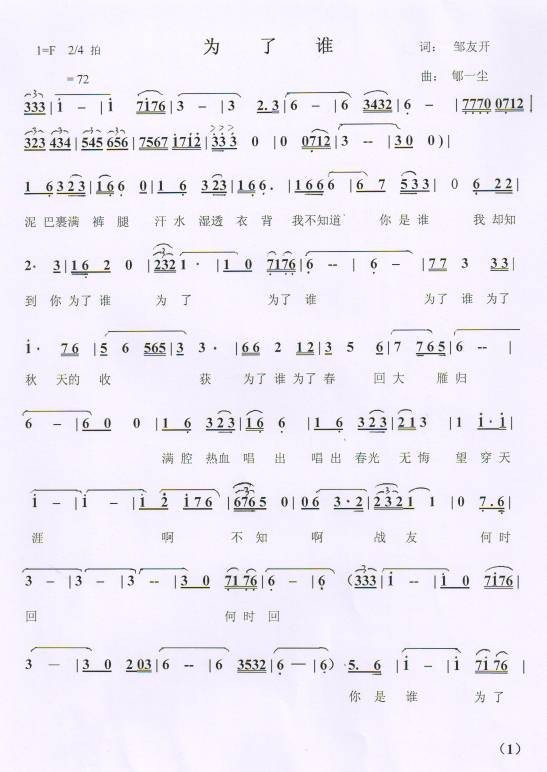 1=F 2/4 拍 为了谁 词： 邹友开
=72 曲： 郇一尘
333 | i － | i 7i76 | 3 － | 3 2.3 | 6 － | 6 3432 | 6 － | 7770 0712 |
323 434 | 545 656 | 7567 i7i2 | 3 3 3 0 | 0 0712 | 3 -- | 3 0 0 ) |
1 6 3 2 3 | 1 6 6 0 | 1 6 323 | 1 6 6. | 1 6 6 6 | 6 7 5 3 3 | 0 6 2 2 |
泥巴裹满 裤腿 汗水 湿透 衣背 我不知道 你是谁 我却知
2· 3 | 1 6 2 0 | 232 1· | 1 0 7176 | 6 -- | 6 － | 7 7 3 3 3 |
到 你为了谁 为了 为了谁 为了谁 为了
i· 7 6 | 5 6 565 | 3 3· | 6 6 2 1 2 | 3 5 6 | 7 7 6 5 | 6 -- |
秋 天的 收 获 为了谁为了春 回大 雁归
6 － | 6 0 0 | 1 6 323 | 1 6 6 | 1 6 323 | 2 1 3 | 1 0 i· i |
满腔 热血 唱出 唱出 春光 无悔 望 穿天
i － | i － | i 2 i 7 6 | 6765 0 | 0 6 3·2 | 2321 1 | 0 7.6 |
涯 啊 不知 啊 战友 何时
3 － | 3 － | 3 -- | 3 0 71 76 | 6 － | 6 （333 | i － | i 0 7i76 |
回 何时回
3 － | 3 0 2 03 | 6 -- | 6 3532 | 6 － | 6 －） 5. 6 | i － | i 7i 76 |
你是谁 为了
（1）